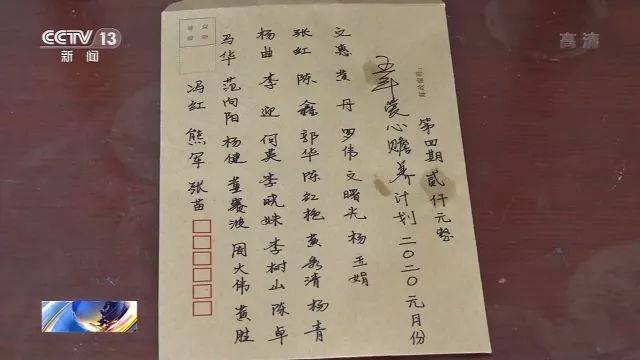 CCTV 13
新闻
高清
邮政编码:
第四期贰仟元整
五年爱心赡养计划二〇二〇元月份
文惠 黄丹 罗伟 文曙光 杨玉娟
张红 陈鑫 郭华 陈红艳 黄 清 杨青
杨曲 李迎 何英 李晓姝 李树山 陈卓
马华 范向阳 杨健 董赛波 周大伟 黄胜
冯红 熊军 张苗